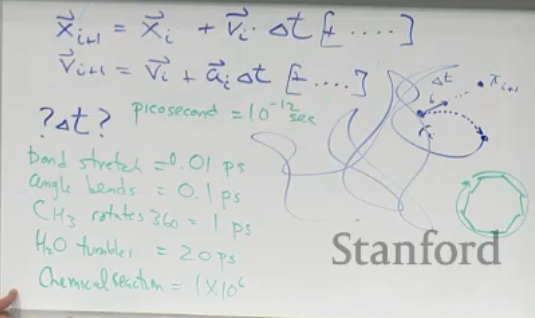 x⃗ᵢ₊₁ = x⃗ᵢ + v⃗ᵢ· Δt [+ ....]
v⃗ᵢ₊₁ = v⃗ᵢ + a⃗ᵢ Δt [+ ....]
? Δt ?
picosecond = 10⁻¹² sec
bond stretch = 0.01 ps
angle bends = 0.1 ps
CH₃ rotates 360 = 1 ps
H₂O tumbles = 20 ps
Chemical reaction = 1 X 10⁶
Δt
xᵢ₊₁
xᵢ
Stanford